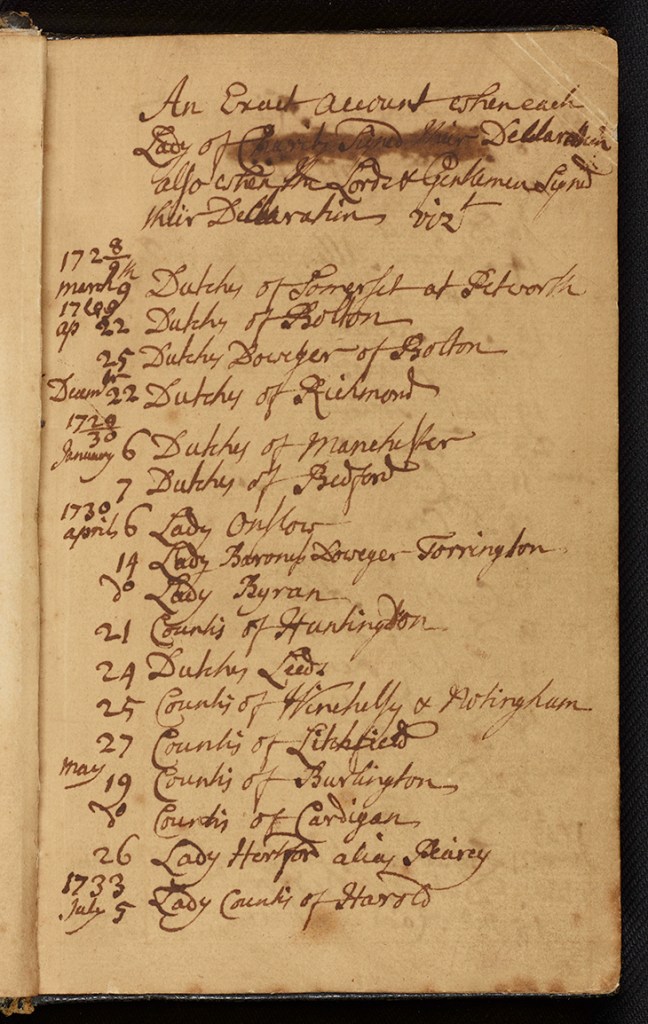 An Exact account when each
Lady of Charity Signed their Declaration
also when the Lords & Gentlemen Syned
their Declaration vizt
172 8/9
march 9th Dutches of Somerset at Petworth
1729
ap 22 Dutchs of Bolton
25 Dutches Doweger of Bolton
Decembr 22 Dutchs of Richmond
1729/30
January 6 Dutches of Manchester
7 Dutches of Bedford
1730
april 6 Lady Onslow
14 Lady Barones Doweger Torrington
do Lady Byran
21 Countis of Huntingdton
24 Dutches Leeds
25 Countis of Winchelsy & Notingham
27 Countis of Litchfield
may 19 Countis of Burlington
do Countis of Cardigan
26 Lady Hertford alias Peircy
1733
July 5 Lady Countis of Harold